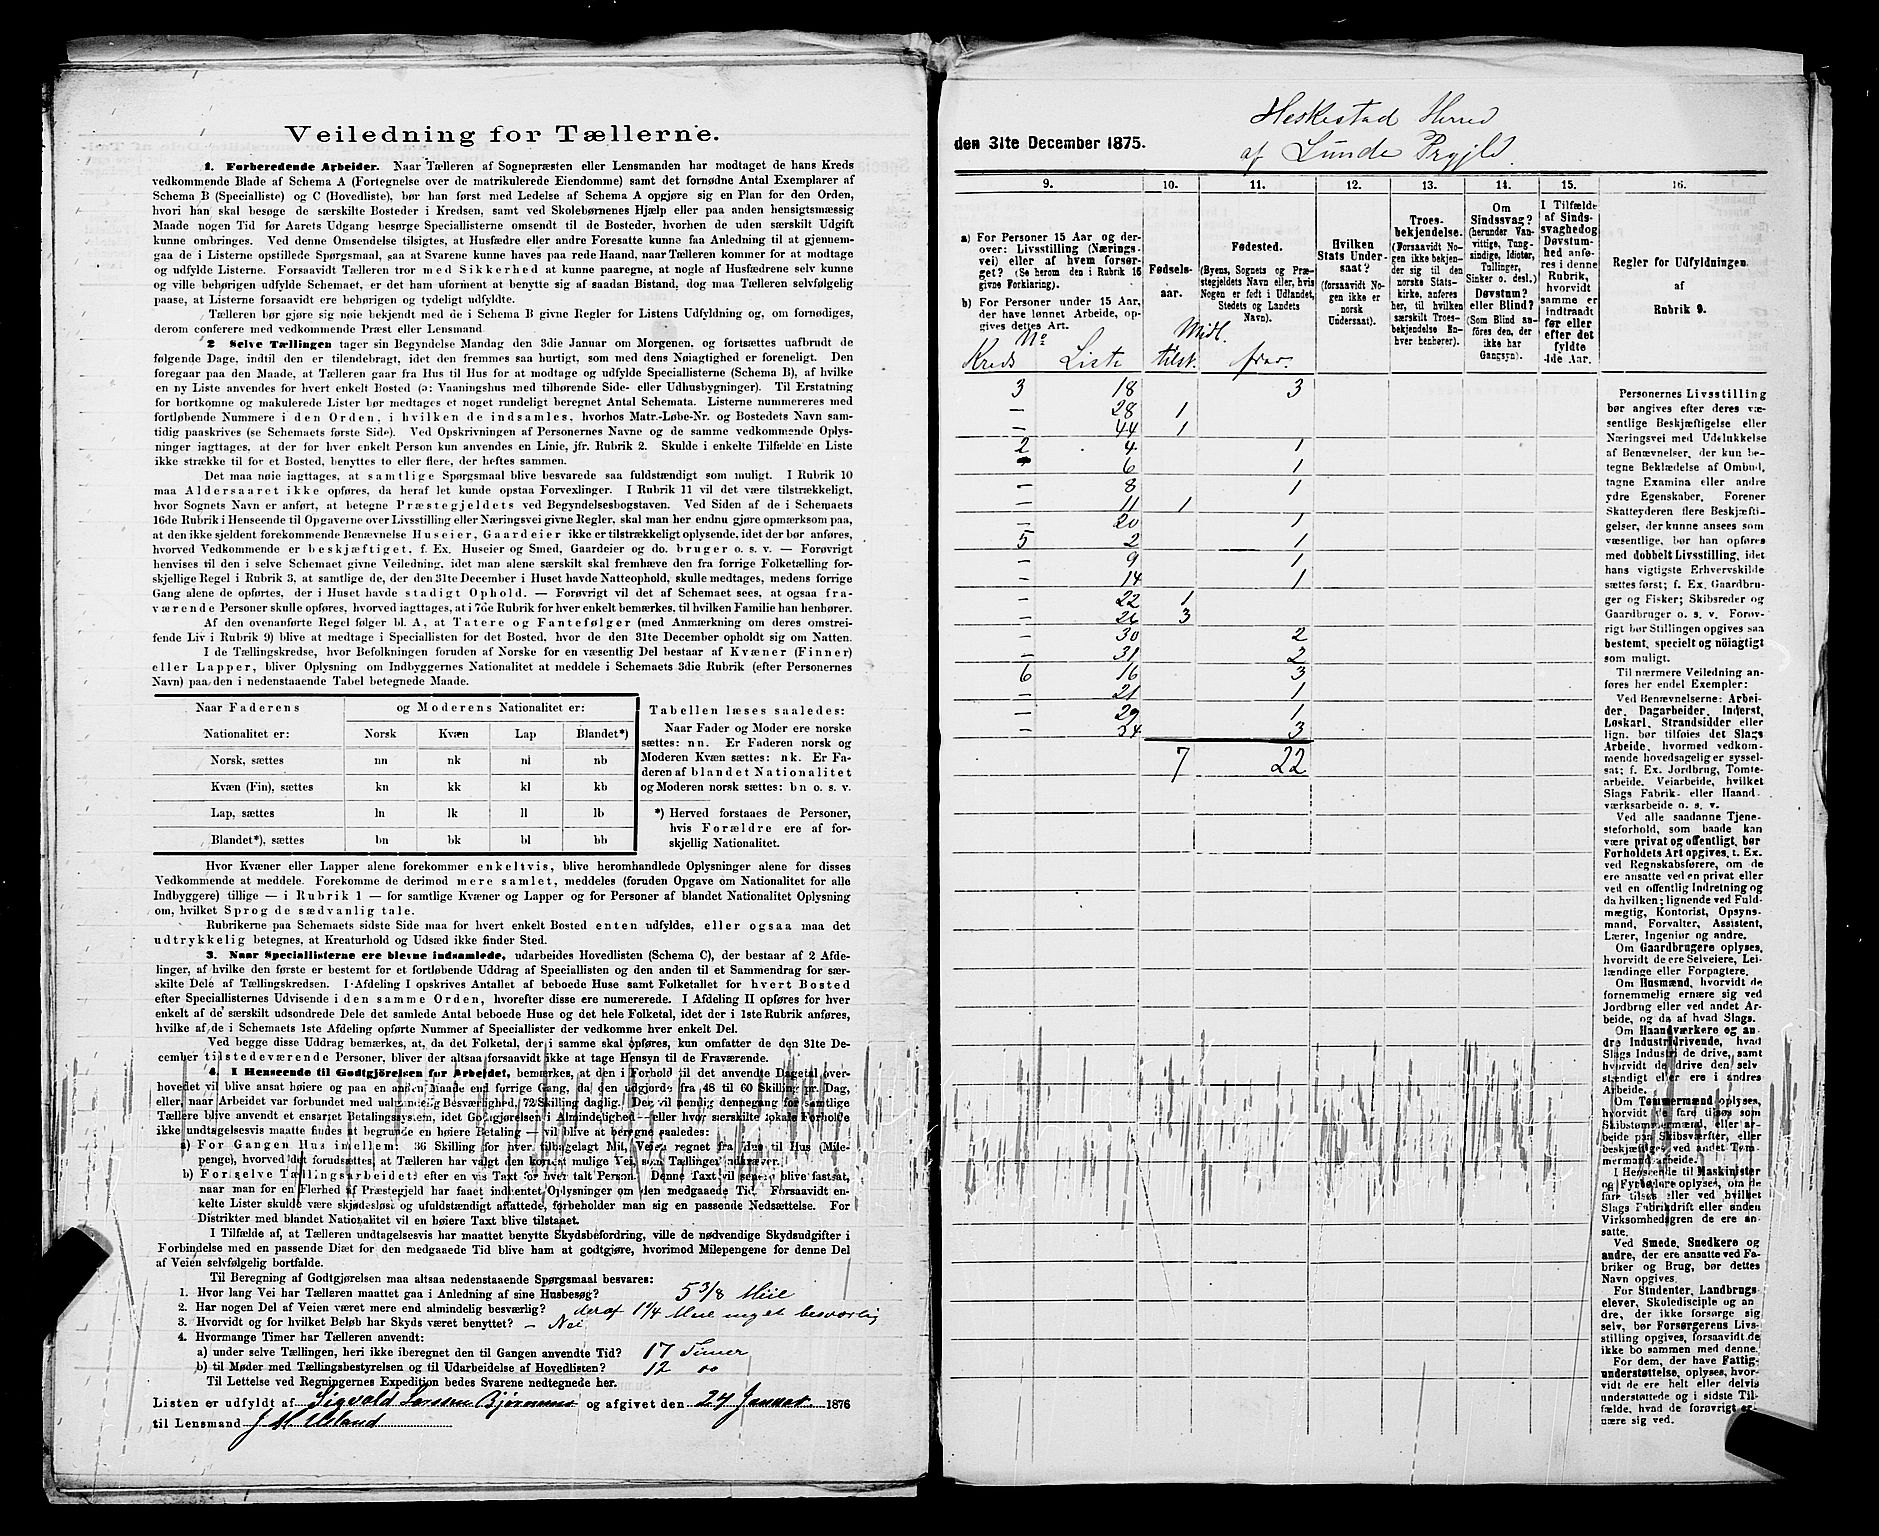 Veiledning for Tællerne.
1. Forberedende Arbeider. Naar Tælleren af Sognepræsten eller Lensmanden har modtaget de hans Kreds
vedkommende Blade af Schema A (Fortegnelse over de matrikulerede Eiendomme) samt det fornødne Antal Exemplarer af
Schema B (Specialliste) og C (Hovedliste), bør han først med Ledelse af Schema A opgjøre sig en Plan for den Orden,
hvori han skal besøge de særskilte Bosteder i Kredsen, samt ved Skolebørnenes Hjælp eller paa anden hensigtsmæssig
Maade nogen Tid før Aarets Udgang besørge Speciallisterne omsendt til de Bosteder, hvorhen de uden særskilt Udgift
kunne ombringes. Ved denne Omsendelse tilsigtes, at Husfædre eller andre Foresatte kunne faa Anledning til at gjennem-
gaa de i Listerne opstillede Spørgsmaal, saa at Svarene kunne haves paa rede Haand, naar Tælleren kommer for at modtage
og udfylde Listerne. Forsaavidt Tælleren tror med Sikkerhed at kunne paaregne, at nogle af Husfædrene selv kunne
og ville behørigen udfylde Schemaet, er det ham uforment at benytte sig af saadan Bistand, dog maa Tælleren selvfølgelig
paase, at Listerne forsaavidt ere behørigen og tydeligt udfyldte.
Tælleren bør gjøre sig nøie bekjendt med de i Schema B givne Regler for Listens Udfyldning og, om fornødiges,
derom conferere med vedkommende Præst eller Lensmand.
2 Selve Tællingen tager sin Begyndelse Mandag den 3die Januar om Morgenen, og fortsættes uafbrudt de
følgende Dage, indtil den er tilendebragt, idet den fremmes saa hurtigt, som med dens Nøiagtighed er foreneligt. Den
foregaar paa den Maade, at Tælleren gaar fra Hus til Hus for at modtage og udfylde Speciallisterne (Schema B), af hvilke
en ny Liste anvendes for hvert enkelt Bosted (ɔ: Vaaningshus med tilhørende Side- eller Udhusbygninger). Til Erstatning
for bortkomne og makulerede Lister bør medtages et noget rundeligt beregnet Antal Schemata. Listerne nummereres med
fortløbende Nummere i den Orden, i hvilken de indsamles, hvorhos Matr.-Løbe-Nr. og Bostedets Navn sam-
tidig paaskrives (se Schemaets første Side). Ved Opskrivningen af Personernes Navne og de samme vedkommende Oplys-
ninger iagttages, at der for hver enkelt Person kun anvendes en Linie, jfr. Rubrik 2. Skulde i enkelte Tilfælde en Liste
ikke strække til for et Bosted, benyttes to eller flere, der heftes sammen.
Det maa nøie iagttages, at samtlige Spørgsmaal blive besvarede saa fuldstændigt som muligt. I Rubrik 10
maa Aldersaaret ikke opføres, da heraf let kunde opstaa Forvexlinger. I Rubrik 11 vil det være tilstrækkeligt,
hvor Sognets Navn er anført, at betegne Præstegjeldets ved Begyndelsesbogstaven. Ved Siden af de i Schemaets
16de Rubrik i Henseende til Opgaverne over Livsstilling eller Næringsvei givne Regler, skal man her endnu gjøre opmærksom paa,
at den ikke sjeldent forekommende Benævnelse Huseier, Gaardeier ikke er tilstrækkeligt oplysende, idet der bør anføres,
hvorved Vedkommende er beskjæftiget, f. Ex. Huseier og Smed, Gaardeier og do. bruger o. s. v. — Forøvrigt
henvises til den i selve Schemaet givne Veiledning, idet man alene særskilt skal fremhæve den fra forrige Folketælling for-
skjellige Regel i Rubrik 3, at samtlige de, der den 31te December i Huset havde Natteophold, skulle medtages, medens forrige
Gang alene de opførtes, der i Huset havde stadigt Ophold. — Forøvrigt vil det af Schemaet sees, at ogsaa fra-
værende Personer skulle opføres, hvorved iagttages, at i 7de Rubrik for hver enkelt bemærkes, til hvilken Familie han henhører.
Af den ovenanførte Regel følger bl. A., at Tatere og Fantefølger (med Anmærkning om deres omstrei-
fende Liv i Rubrik 9) blive at medtage i Speciallisten for det Bosted, hvor de den 31te December opholdt sig om Natten.
I de Tællingskredse, hvor Befolkningen foruden af Norske for en væsentlig Del bestaar af Kvæner (Finner)
eller Lapper, bliver Oplysning om Indbyggernes Nationalitet at meddele i Schemaets 3die Rubrik (efter Personernes
Navn) paa den i nedenstaaende Tabel betegnede Maade.
Naar Faderens
Nationalitet er:
og Moderens Nationalitet er:
Norsk Kvæn Lap Blandet*)
Norsk, sættes nn nk nl nb
Kvæn (Fin), sættes kn kk kl kb
Lap, sættes ln lk ll lb
Blandet*), sættes bn bk bl bb
Tabellen læses saaledes:
Naar Fader og Moder ere norske
sættes: nn. Er Faderen norsk og
Moderen Kvæn sættes: nk. Er Fa-
deren af blandet Nationalitet
og Moderen norsk sættes: bn o. s. v.
*) Herved forstaaes de Personer,
hvis Forældre ere af for-
skjellig Nationalitet.
Hvor Kvæner eller Lapper alene forekommer enkeltvis, blive heromhandlede Oplysninger alene for disses
Vedkommende at meddele. Forekomme de derimod mere samlet, meddeles (foruden Opgave om Nationalitet for alle
Indbyggere) tillige — i Rubrik 1 — for samtlige Kvæner og Lapper og for Personer af blandet Nationalitet Oplysning
om, hvilket Sprog de sædvanlig tale.
Rubrikerne paa Schemaets sidste Side maa for hvert enkelt Bosted enten udfyldes, eller ogsaa maa det
udtrykkelig betegnes, at Kreaturhold og Udsæd ikke finder Sted.
3. Naar Speciallisterne ere blevne indsamlede, udarbeides Hovedlisten (Schema C), der bestaar af 2 Afde-
linger, af hvilke den første er bestemt for et fortløbende Uddrag af Speciallisten og den anden til et Sammendrag for sær-
skilte Dele af Tællingskredsen. I Afdeling I opskrives Antallet af beboede Huse samt Folketallet for hvert Bosted
efter Speciallisternes Udvisende i den samme Orden, hvorefter disse ere nummererede. I Afdeling II opføres for hver
enkelt af de særskilt udsondrede Dele det samlede Antal beboede Huse og det hele Folketal, idet der i 1ste Rubrik anføres,
hvilke af de i Schemaets 1ste Afdeling opførte Nummer af Speciallister der vedkomme hver enkelt Del.
Ved begge disse Uddrag bemærkes, at, da det Folketal, der i samme skal opføres, kun omfatter de den 31te De-
cember tilstedeværende Personer, bliver der altsaa forsaavidt ikke at tage Hensyn til de Fraværende.
4. I Henseende til Godtgjörelsen for Arbeidet, bemærkes, at den i Forhold til det anvendte Dagetal over-
hovedet vil blive ansat høiere og paa en anden Maade end forrige Gang, da den udgjorde fra 48 til 60 Skilling pr. Dag,
eller, naar Arbeidet var forbundet med ualmindelig Besværlighed, 72 Skilling daglig. Der vil nemlig dennegang for samtlige
Tællere blive anvendt et ensartet Betalingssystem, idet Godtgjørelsen i Almindelighed — eller hvor særskilte lokale Forholde
ikke undtagelsesvis maatte findes at begrunde en høiere Betaling — vil blive at beregne saaledes:
a) For Gangen Hus imellem: 36 Skilling for hver tilbagelagt Mil, Veien regnet fra Hus til Hus (Mile-
penge), hvorved det forudsættes, at Tælleren har valgt den kortest mulige Vei, som Tællingen indkræver.
b) For selve Tællingsarbeidet: efter en vis Taxt for hver talt Person. Denne Taxt vil senere blive fastsat,
naar man for en Flerhed af Præstegjeld har faaet indhentet Oplysninger om den medgaaede Tid. Forsaavidt en-
kelte Lister skulde være skjødesløst og ufuldstændigt affattede, forbeholder man sig en passende Nedsættelse. For
Distrikter med blandet Nationalitet vil en høiere Taxt blive tilstaaet.
I Tilfælde af, at Tælleren undtagelsesvis har maattet benytte Skydsbefordring, ville de nødvendige Skydsudgifter i
Forbindelse med en passende Diæt for den medgaaede Tid blive ham at godtgjøre, hvorimod Milepengene for denne Del
af Veien selvfølgelig bortfalde.
Til Beregning af Godtgjørelsen maa altsaa nedenstaaende Spørgsmaal besvares:
1. Hvor lang Vei har Tælleren maattet gaa i Anledning af sine Husbesøg? 5 3/8 Miil
2. Har nogen Del af Veien været mere end almindelig besværlig? deraf 1 1/4 Miil meget besværlig
3. Hvorvidt og for hvilket Beløb har Skyds været benyttet? – Nei
4. Hvormange Timer har Tælleren anvendt:
a) under selve Tællingen, heri ikke iberegnet den til Gangen anvendte Tid? 17 Timer
b) til Møder med Tællingsbestyrelsen og til Udarbeidelse af Hovedlisten? 12 do
Til Lettelse ved Regningernes Expedition bedes Svarene nedtegnede her.
Listen er udfyldt af Sigvald Larsen og afgivet den 24 Januar 1876
til Lensmand
Heskestad Herred
den 31te December 1875.
af Lunde Prgjld.
9. 10. 11. 12. 13. 14. 15. 16.
a) For Personer 15 Aar og der-
over: Livsstilling (Nærings-
vei) eller af hvem forsør-
get? (Se herom den i Rubrik 16
givne Forklaring).
b) For Personer under 15 Aar,
der have lønnet Arbeide, op-
gives dettes Art.
Fødsels-
aar.
Fødested.
(Byens, Sognets og Præ-
stegjeldets Navn eller, hvis
Nogen er født i Udlandet,
Stedets og Landets
Navn).
Hvilken
Stats Under-
saat?
(forsaavidt No-
gen ikke er
norsk
Undersaat).
Troes-
bekjendelse.
(Forsaavidt No-
gen ikke bekjen-
der sig til den
norske Stats-
kirke, anføres
her, til hvilken
særskilt Troes-
bekjendelse En-
hver henhører).
Om
Sindssvag?
(herunder Van-
vittige, Tung-
sindige, Idioter,
Tullinger,
Sinker o. desl.)
Døvstum?
eller Blind?
(Som Blind an-
føres den, der
ikke har
Gangsyn).
I Tilfælde
af Sinds-
svaghed og
Døvstum-
hed anfø-
res i denne
Rubrik,
hvorvidt
samme er
indtraadt
før eller
efter det
fyldte
4de Aar.
Regler for Udfyldningen
af
Rubrik 9.
No Midl.
Kreds Liste tilst. frav.
3 18 3
— 28 1
— 44 1
2 4 1
— 6 1
— 8 1
— 11 1
— 20 1
5 2 1
— 9 1
— 14 1
— 22 1
— 26 3
— 30 2
— 31 2
6 16 3
— 21 1
— 29 1
— 34 3
7 22
Personernes Livsstilling
bør angives efter deres væ-
sentlige Beskjæftigelse eller
Næringsvei med Udelukkelse
af Benævnelser, der kun be-
tegne Beklædelse af Ombud,
tagne Examina eller andre
ydre Egenskaber. Forener
Skatteyderen flere Beskjæfti-
gelser, der kunne ansees som
væsentlige, bør han opføres
med dobbelt Livsstilling, idet
hans vigtigste Erhvervskilde
sættes først; f. Ex. Gaardbru-
ger og Fisker; Skibsreder og
Gaardbruger o. s. v. Forøv-
rigt bør Stillingen opgives saa
bestemt, specielt og nöiagtigt
som muligt.
Til nærmere Veiledning an-
føres her endel Exempler:
Ved Benævnelserne: Arbei-
der, Dagarbeider, Inderst,
Løskarl, Strandsidder eller
lign. bør tilføies det Slags
Arbeide, hvormed vedkom-
mende hovedsagelig er syssel-
sat; f. Ex. Jordbrug, Tomte-
arbeide, Veiarbeide, hvilket
Slags Fabrik- eller Haand-
værksarbeide o. s. v.
Ved alle saadanne Tjene-
steforhold, som baade kan
være privat og offentligt, bør
Forholdets Art opgives, f. Ex.
ved Regnskabsførere, om de
ere ansatte ved en privat eller
ved en offentlig Indretning og
da hvilken; lignende ved Fuld-
mægtig, Kontorist, Opsyns-
mand, Forvalter, Assistent,
Lærer, Ingeniør og andre.
Om Gaardbrugere oplyses,
hvorvidt de ere Selveiere, Lei-
lændinge eller Forpagtere.
Om Husmænd, hvorvidt de
fornemmelig ernære sig ved
Jordbrug eller ved andet Ar-
beide, og da af hvad Slags.
Om Haandværkere og an-
dre Industridrivende, hvad
Slags Industri de drive, samt
hvorvidt de drive den selv-
stændigt eller ere i andres
Arbeide.
Om Tømmermænd oplyses,
hvorvidt de fare tilsøs som
Skibstømmermænd, eller ar-
beide paa Skibsværfter, eller
beskjæftiges ved andet Tøm-
mermandsarbeide.
I Henseende til Maskinister
og Fyrbødere oplyses, om de
fare tilsøs eller ved hvilket
Slags Fabrikdrift eller anden
Virksomhedsgren de ere an-
satte.
Ved Smede, Snedkere og
andre, der ere ansatte ved Fa-
briker og Brug, bør dettes
Navn opgives.
For Studenter, Landbrugs-
elever, Skoledisciple og an-
dre, der ikke forsørge sig
selv, bør Forsørgerens Livs-
stilling opgives, forsaavidt de
ikke bo sammen med denne.
For dem, der have Fattig-
understøttelse, oplyses, hvor-
vidt de ere helt eller delvis
understøttede og i sidste Til-
fælde, hvad de forøvrigt er-
nære sig ved.